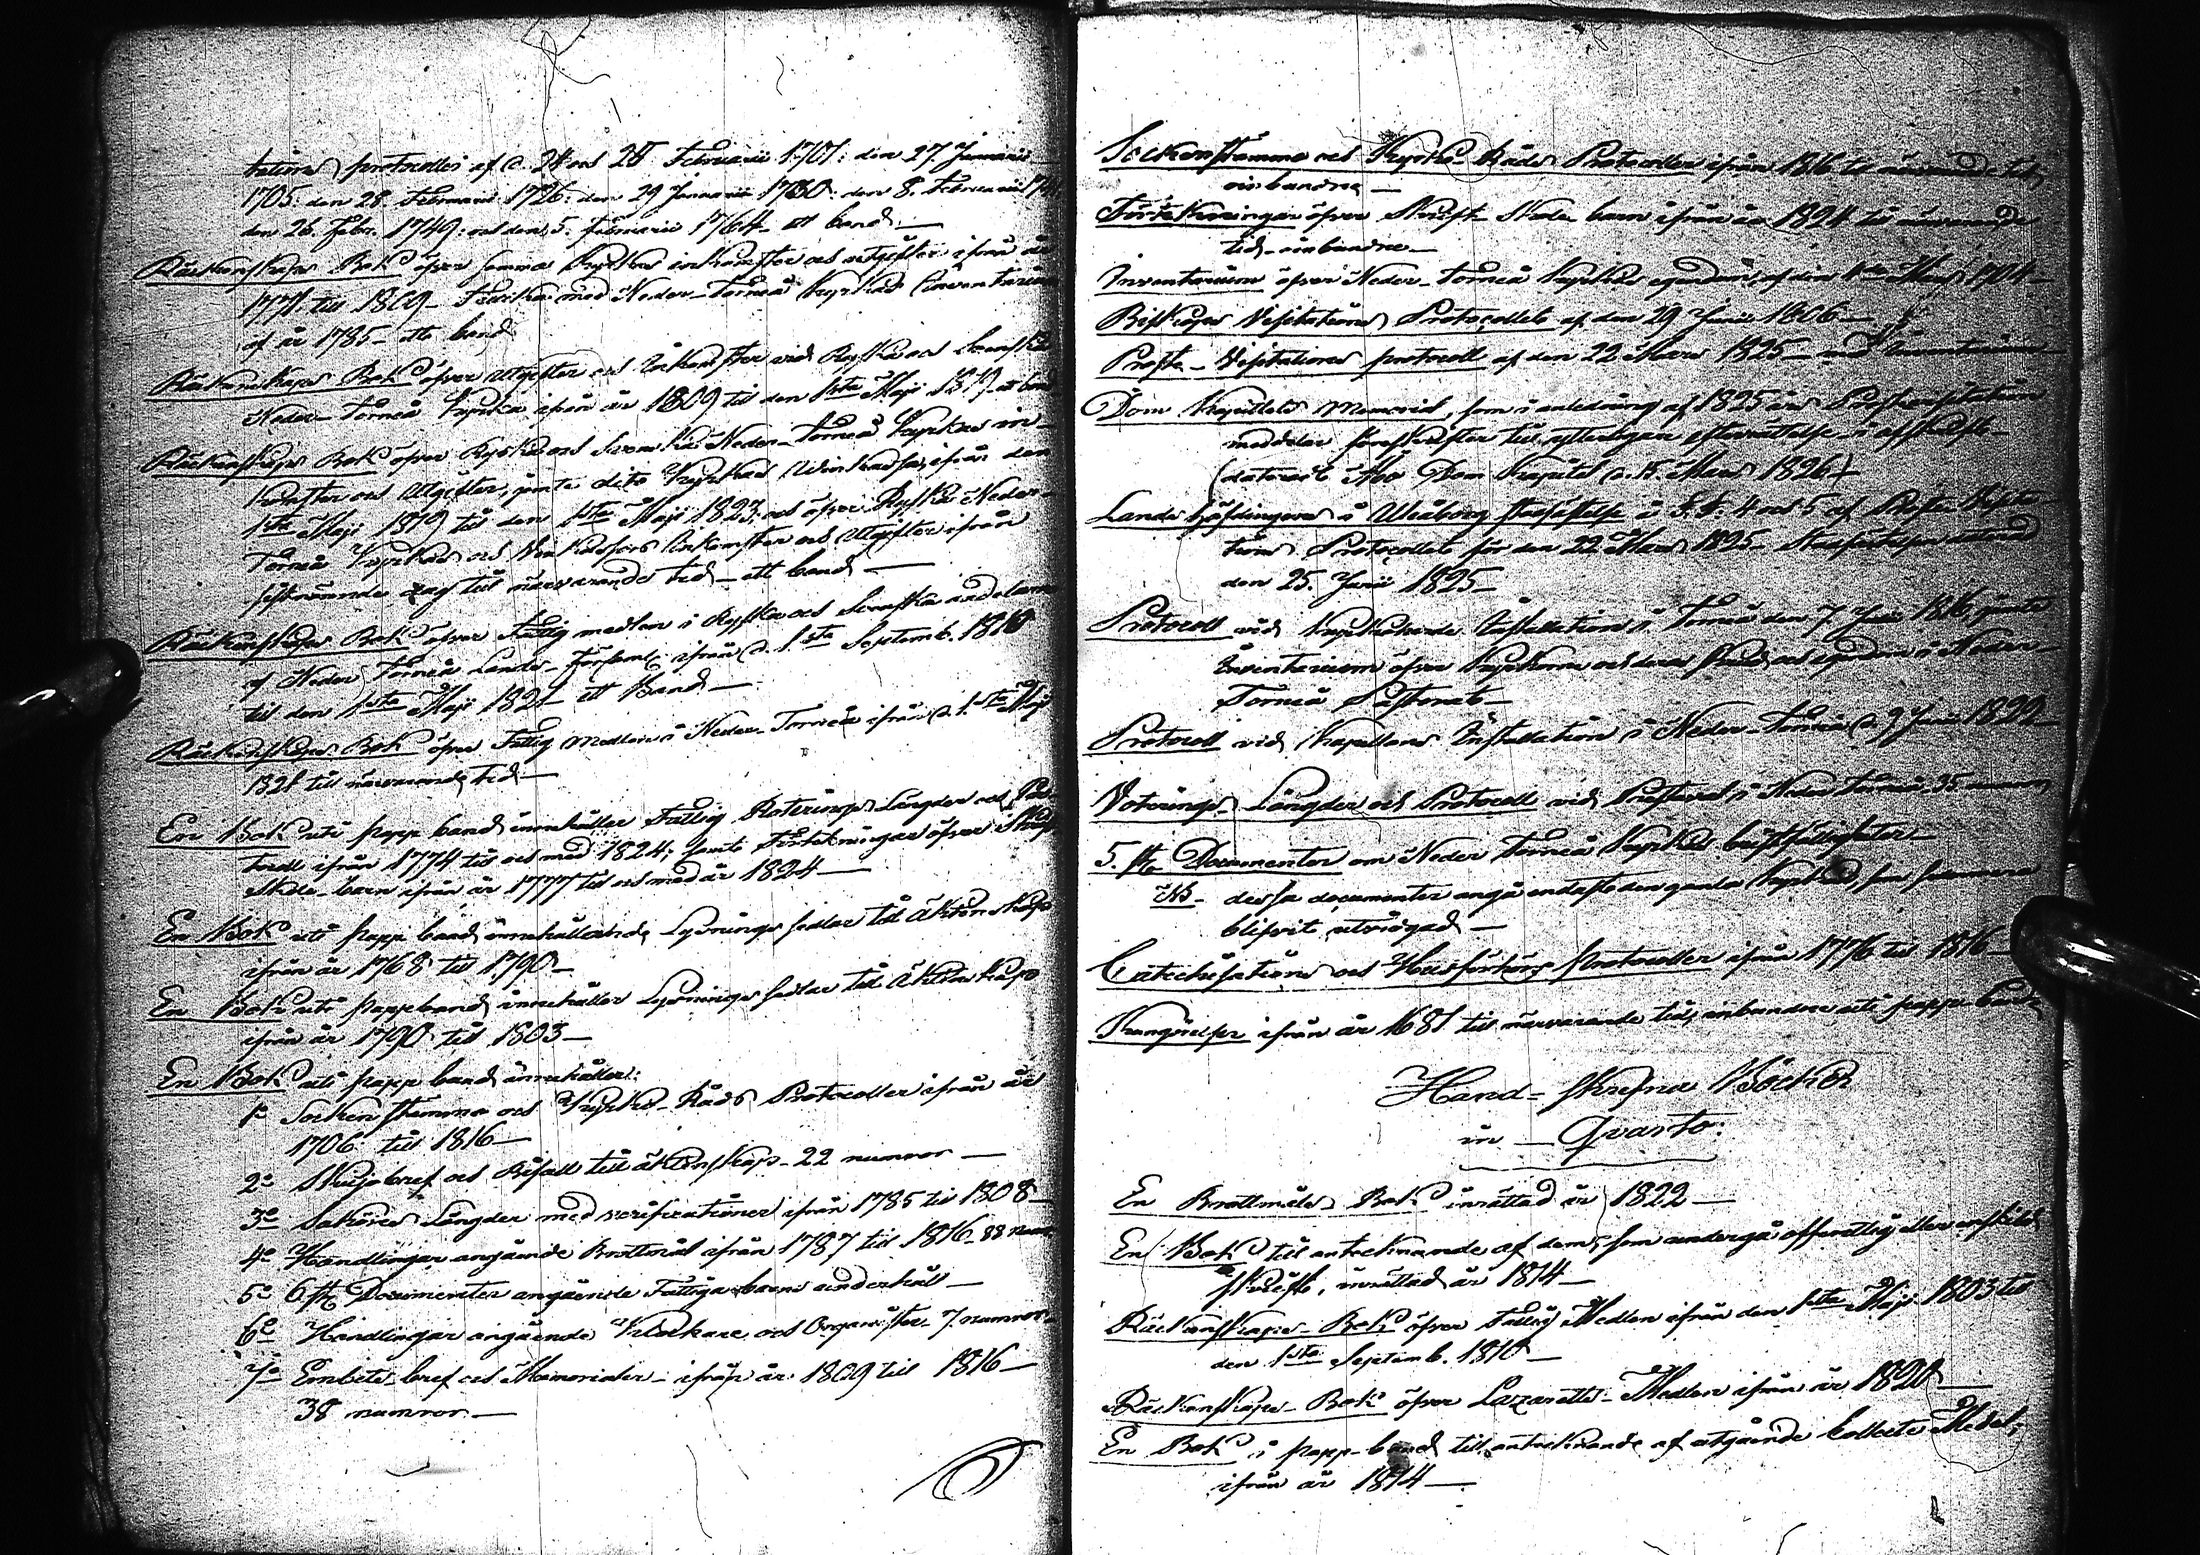 tations protocoller af d. 24 och 28 Februarii 1701: den 27. Januarii
1705: den 28 Februarii 1726: den 29 Januarii 1730: den 8. Februarii
den 26. Febr. 1749: och den 5. Februarii 1764 - ett band -
Räkenskaps Bok öfver samma Kyrkas inkomster och utgifter ifrån år
1771 till 1809 - Tillika med Neder-Torneå Kyrkas Inventarium
af år 1785 - ett band
Räkenskaps Bok öfver utgifter och Inkomster vid Ryska och Svenska
Neder-Torneå Kyrka ifrån år 1809 til den 1sta Maji 1819 ett band
Räkenskaps Bok öfver Ryska och Svenska Neder-Torneå Kyrkas in-
komster och Utgifter, jemte dito Kyrkas Vinkassa, ifrån den
1sta Maji 1819 til den 1sta Maji 1823: och öfver Ryska Neder-
Torneå Kyrkas och Vinkassas Inkomster och Utgifter ifrån
sistnämnde dag til närvarande tid - ett band -
Räkenskaps Bok öfver Fattig medlen i Ryska och Svenska andelarne
af Neder Torneå Lands-Församl. ifrån d. 1sta Septemb. 1810
till den 1sta Maji 1821 - ett Band -
Räkenskaps Bok öfver Fattig Medlen i Neder-Torneå ifrån d. 1sta Maji
1821 till närvarande tid -
En Bok uti papp band innehåller Fattig Roterings Längder och Pro-
tocoll ifrån 1774 till och med 1824; samt Förtekningar öfver Skrift
Skole-barn ifrån år 1777 till och med år 1824 -
En Bok uti papp band innehållande Lysnings sedlar till Äktenskap
ifrån år 1768 till 1790 -
En Bok uti pappband innehåller Lysnings sedlar till Äktenskap
ifrån år 1790 till 1803 -
En Bok uti papp band innehåller:
1o Sockenstämma och Kyrko-Råds Protocoller ifrån år
1706 till 1816 -
2o Skiljobref och Bifall till äktenskap - 22 numror -
3o Saköres Längder med verificationer ifrån 1785 til 1808 -
4o Handlingar angående Brottmål ifrån 1787 till 1816 - 88 num
5o 6 st. Documenter angående Fattiga barns underhåll -
6o Handlingar angående Klockare och Organister - 7 numror -
7o Embets-bref och Memorialer - ifrån år 1809 till 1816 -
38 numror -
Sockenstämmo och Kyrko-Råds Protocoller ifrån 1816 til närvarande tid,
oinbundne -
Förtekningar öfver Skrift-Skole barn ifrån år 1824 til närvarande
tid - oinbundne -
Inventarium öfver Neder-Torneå Kyrkas egendom af den Mars 1794 -
Biskops Visitations Protocollet af den 29 Junii 1806 -
Prosts-Visitations protocoll af den 22 Mars 1825 - med Inventarium
Dom Kapitlets Memorial, som i anledning af 1825 års Prostvisitation
meddelar föreskrifter til ytterligare efterrättelse i afskrift -
(daterade Åbo Dom Kapitel d. 15. Mars 1826)
Lands Höfdingens i Uleåborg stadfästelse å §.§. 4 och 5 af Prosts Visita-
tions Protocollet för den 22 Mars 1825 - Stadfästelsen daterad
den 25. Junii 1825 -
Protocoll vid Kyrkoherde Installation i Torneå den 7 Julii 1816, jemte
Inventarium öfver Kyrkorne och deras skrud och egendom i Neder-
Torneå Pastorat -
Protocoll vid Kapellans Installation i Neder-Torneå d. 9 Junii 1822 -
Voterings-Längder och Protocoll vid Prestval i Neder Torneå, 35 numror
5. st. Documenter om Neder Torneå Kyrkas bristfälligheter -
NB - dessa documenter angå endast den gamla Kyrkan, som sedermera
blifvit utrögad -
Catechisations och Husförhörs protocoller ifrån 1776 till 1816 -
Kungörelser ifrån år 1681 till närvarande tid, inbundne uti papp-band
Hand-skrefna Böcker
in - Qvarto:
En Brottmåls Bok inrättad år 1822 -
En Bok till antecknande af dem, som undergå offentlig eller enskild
skrift, inrättad år 1814 -
Räkenskaps-Bok öfver Fattig Medlen ifrån den 1sta Maji 1803 til
den 1sta Septemb. 1810 -
Räkenskaps-Bok öfver Lazaretts-Medlen ifrån år 1820 -
En Bok i papp-band till antecknande af utgående Collecte Medel,
ifrån år 1814 -